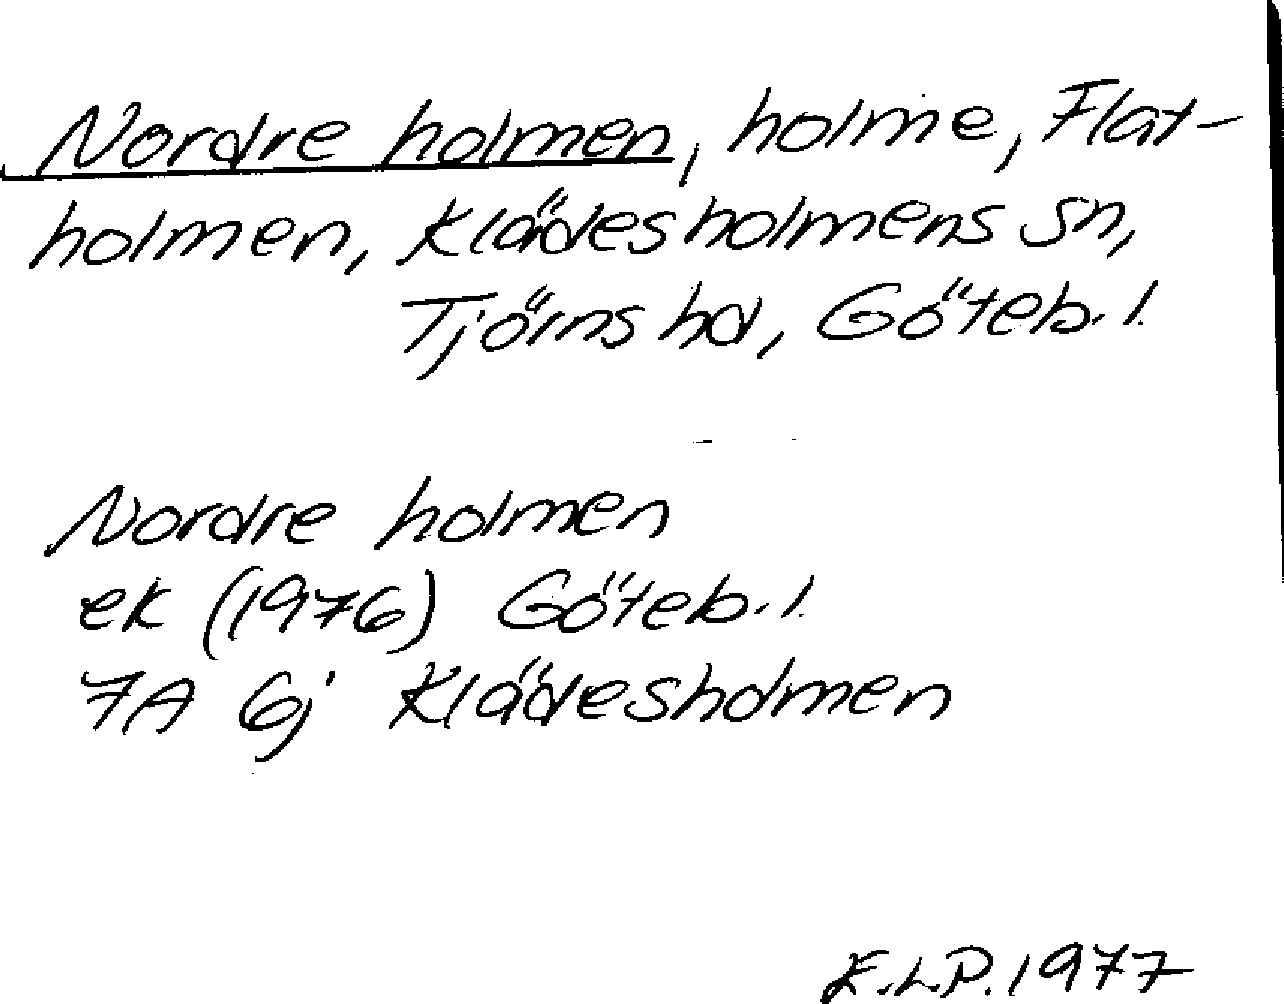 Nordre holmen, holme, Flat-
holmen, Klädesholmens sn,
Tjörns hd, Göteb. l.
Nordre holmen
ek (1976) Göteb. l.
7A 6j Klädesholmen
E.L.P. 1977